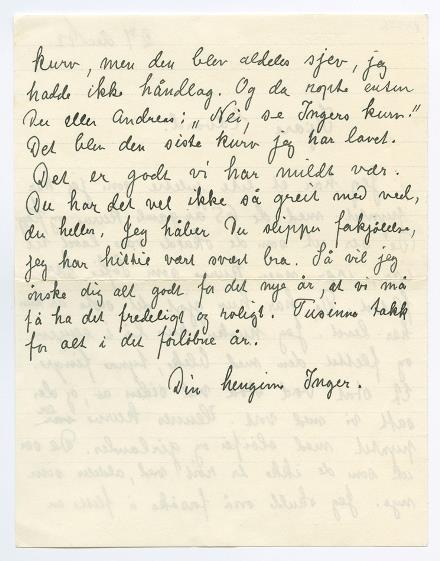 kurv, men den blev aldeles sjev, jeg
hadde ikke håndlag. Og da ropte enten
Du eller Andreas: "Nei, se Ingers kurv!"
Det blev den siste kurv jeg har lavet.
Det er godt vi har mildt vær.
Du har det vel ikke så greit med ved,
du heller. Jeg håber Du slipper forkjølelse,
jeg har hittil vært svært bra. Så vil jeg
ønske dig alt godt for det nye år, at vi må
få ha det fredeligt og roligt. Tusinne takk
for alt i det forløbne år.
Din hengivne Inger.